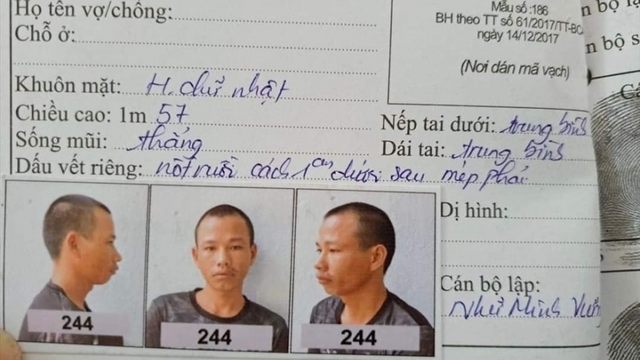 Họ tên vợ/chồng:
Chỗ ở:
Mẫu số :186
BH theo TT số 61/2017/TT-BCA
ngày 14/12/2017
(Nơi dán mã vạch)
Khuôn mặt: H. chữ nhật
Chiều cao: 1m 57
Sống mũi: thẳng
Nếp tai dưới: trung bình
Dái tai: trung bình
Dấu vết riêng: nốt ruồi cách 1cm dưới sau mép phải
Dị hình:
Cán bộ lập:
Như Minh
244
244
244
n bộ s